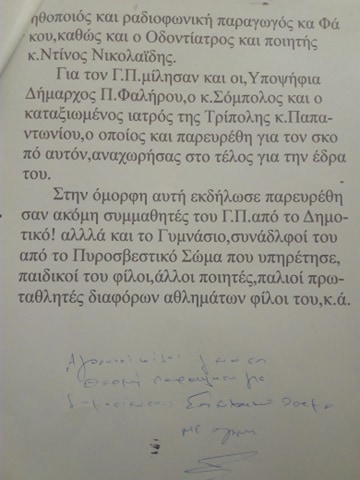 ηθοποιός και ραδιοφωνική παραγωγός κα Φά
κου,καθώς και ο Οδοντίατρος και ποιητής
κ.Ντίνος Νικολαΐδης.
Για τον Γ.Π.μίλησαν και οι,Υποψήφια
Δήμαρχος Π.Φαλήρου,ο κ.Σόμπολος και ο
καταξιωμένος ιατρός της Τρίπολης κ.Παπα-
ντωνίου,ο οποίος και παρευρέθη για τον σκο
πό αυτόν,αναχωρήσας στο τέλος για την έδρα
του.
Στην όμορφη αυτή εκδήλωσε παρευρέθη
σαν ακόμη συμμαθητές του Γ.Π.από το Δημο-
τικό! αλλλά και το Γυμνάσιο,συνάδλφοί του
από το Πυροσβεστικό Σώμα που υπηρέτησε,
παιδικοί του φίλοι,άλλοι ποιητές,παλιοί πρω-
ταθλητές διαφόρων αθλημάτων φίλοι του,κ.ά.